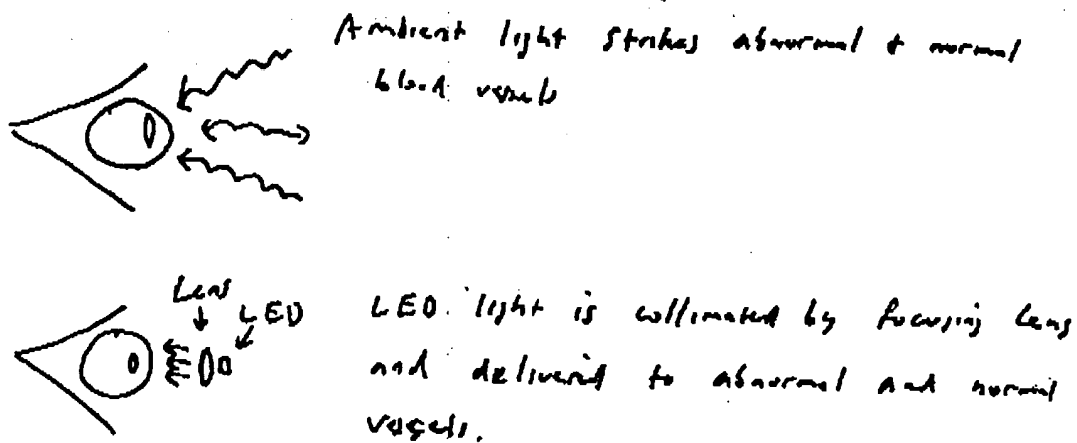 Ambient light strikes abnormal + normal
blood vessels
Lens
LED
LED light is collimated by focusing lens
and delivered to abnormal and normal
vessels.